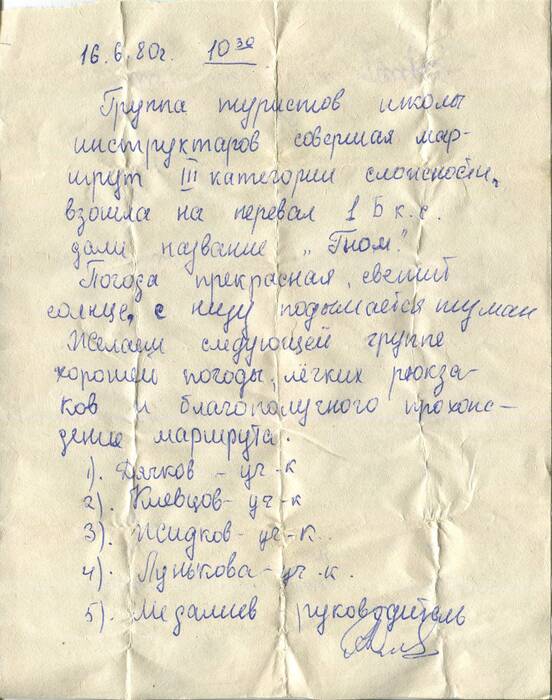 16.6.80г. 10³⁰
Группа туристов школы
инструктаров совершая мар-
шрут III категории сложности,
взошла на перевал 1 Б к.с.
дали название „Гном."
Погода прекрасная, светит
солнце, с низу подымается туман
Желаем следующей группе
хорошей погоды, лёгких рюкза-
ков и благополучного прохож-
дение маршрута.
1). Дячков - уч-к
2). Клевцов - уч-к
3). Жидков - уч-к.
4). Лунькова - уч.к.
5). Медалиев руководитель